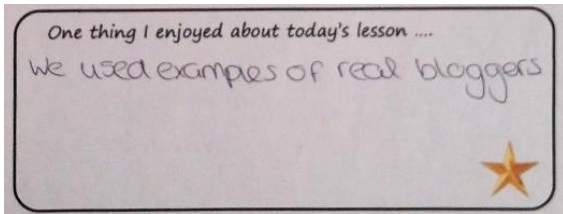 One thing I enjoyed about today's lesson ....
we used examples of real bloggers